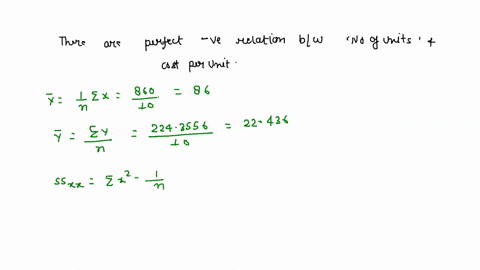 There are perfect -ve relation b/w 'No of units' &
cost per unit.
x̄ = 1/n Σx = 860/10 = 86
ȳ = Σy/n = 224.3556/10 = 22.436
SSxx = Σx² - 1/n